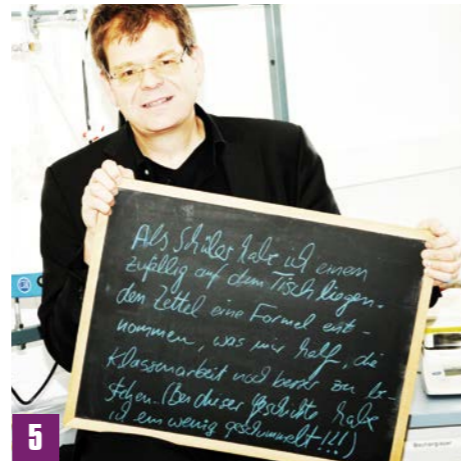 Als Schüler habe ich einen
zufällig auf dem Tisch liegen-
den Zettel eine Formel ent-
nommen, was mir half, die
Klassenarbeit noch besser zu be-
stehen. (Bei dieser Geschichte habe
ich ein wenig geschummelt!!!)
5